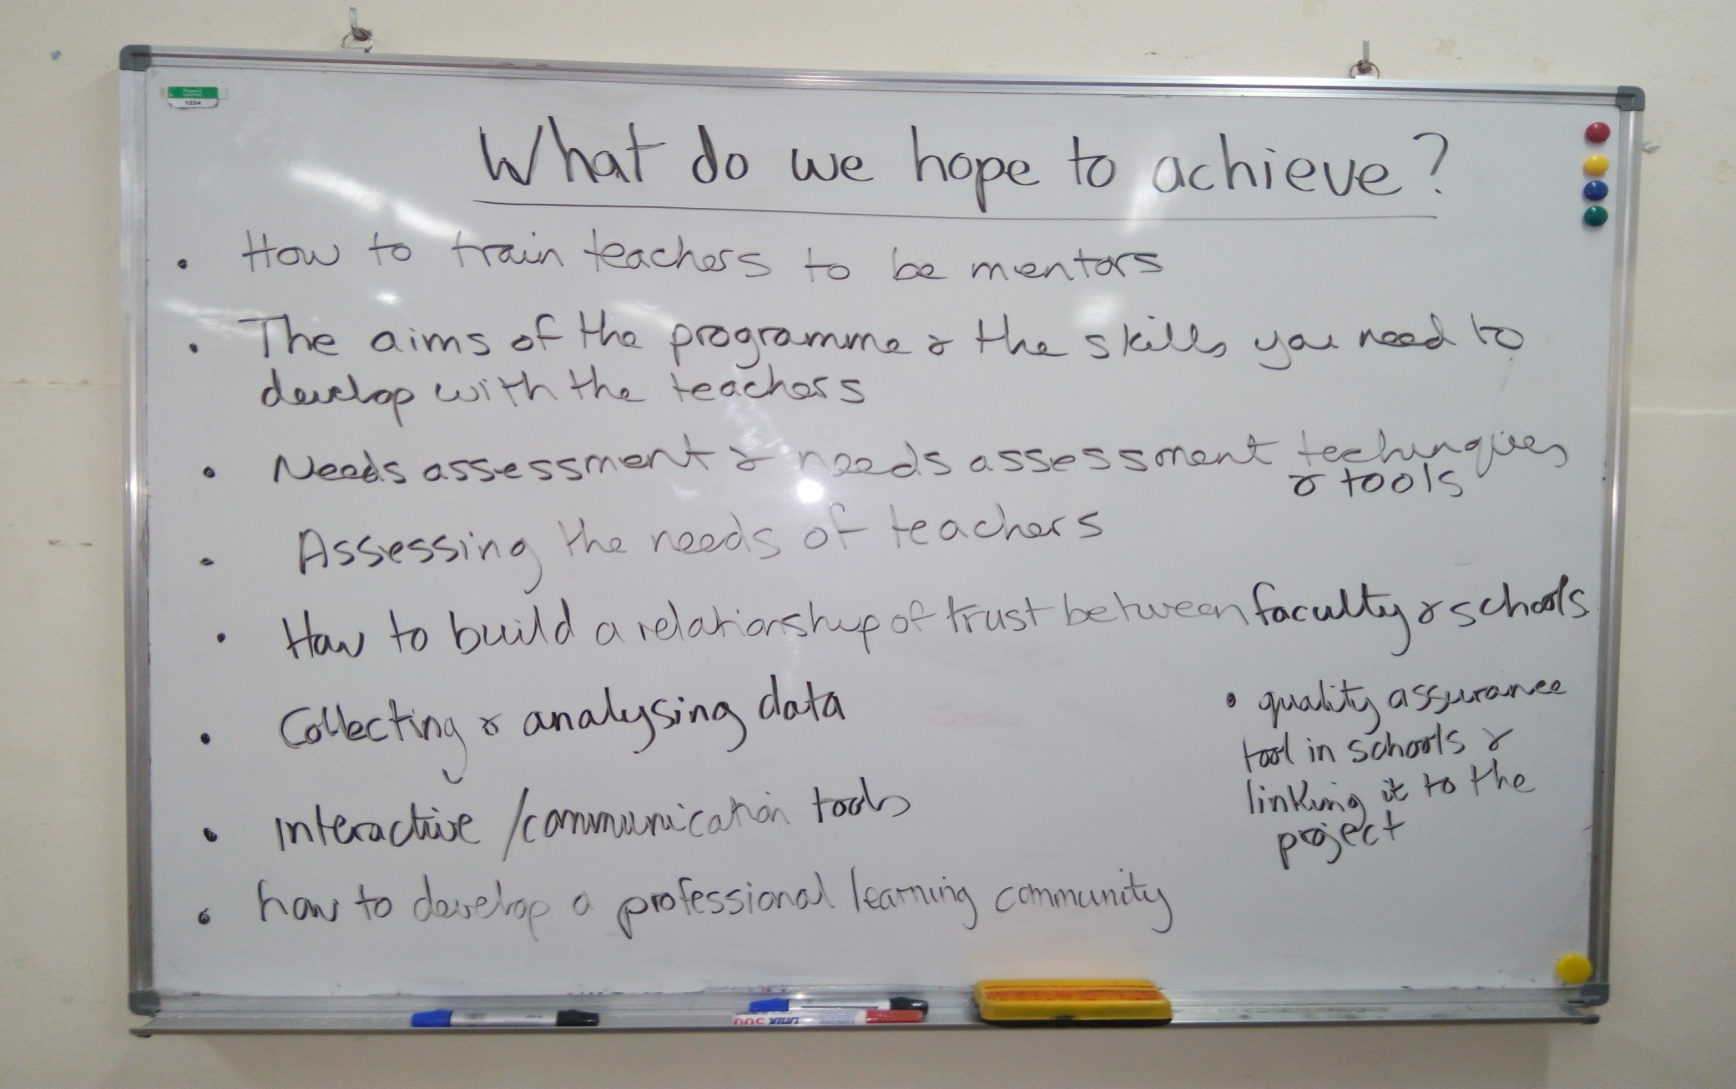 What do we hope to achieve?
• How to train teachers to be mentors
• The aims of the programme & the skills you need to
develop with the teachers
• Needs assessment & needs assessment techinques
& tools
• Assessing the needs of teachers
• How to build a relationship of trust between faculty & schools
• Collecting & analysing data
• interactive /communication tools
• how to develop a professional learning community
• quality assurance
tool in schools &
linking it to the
project